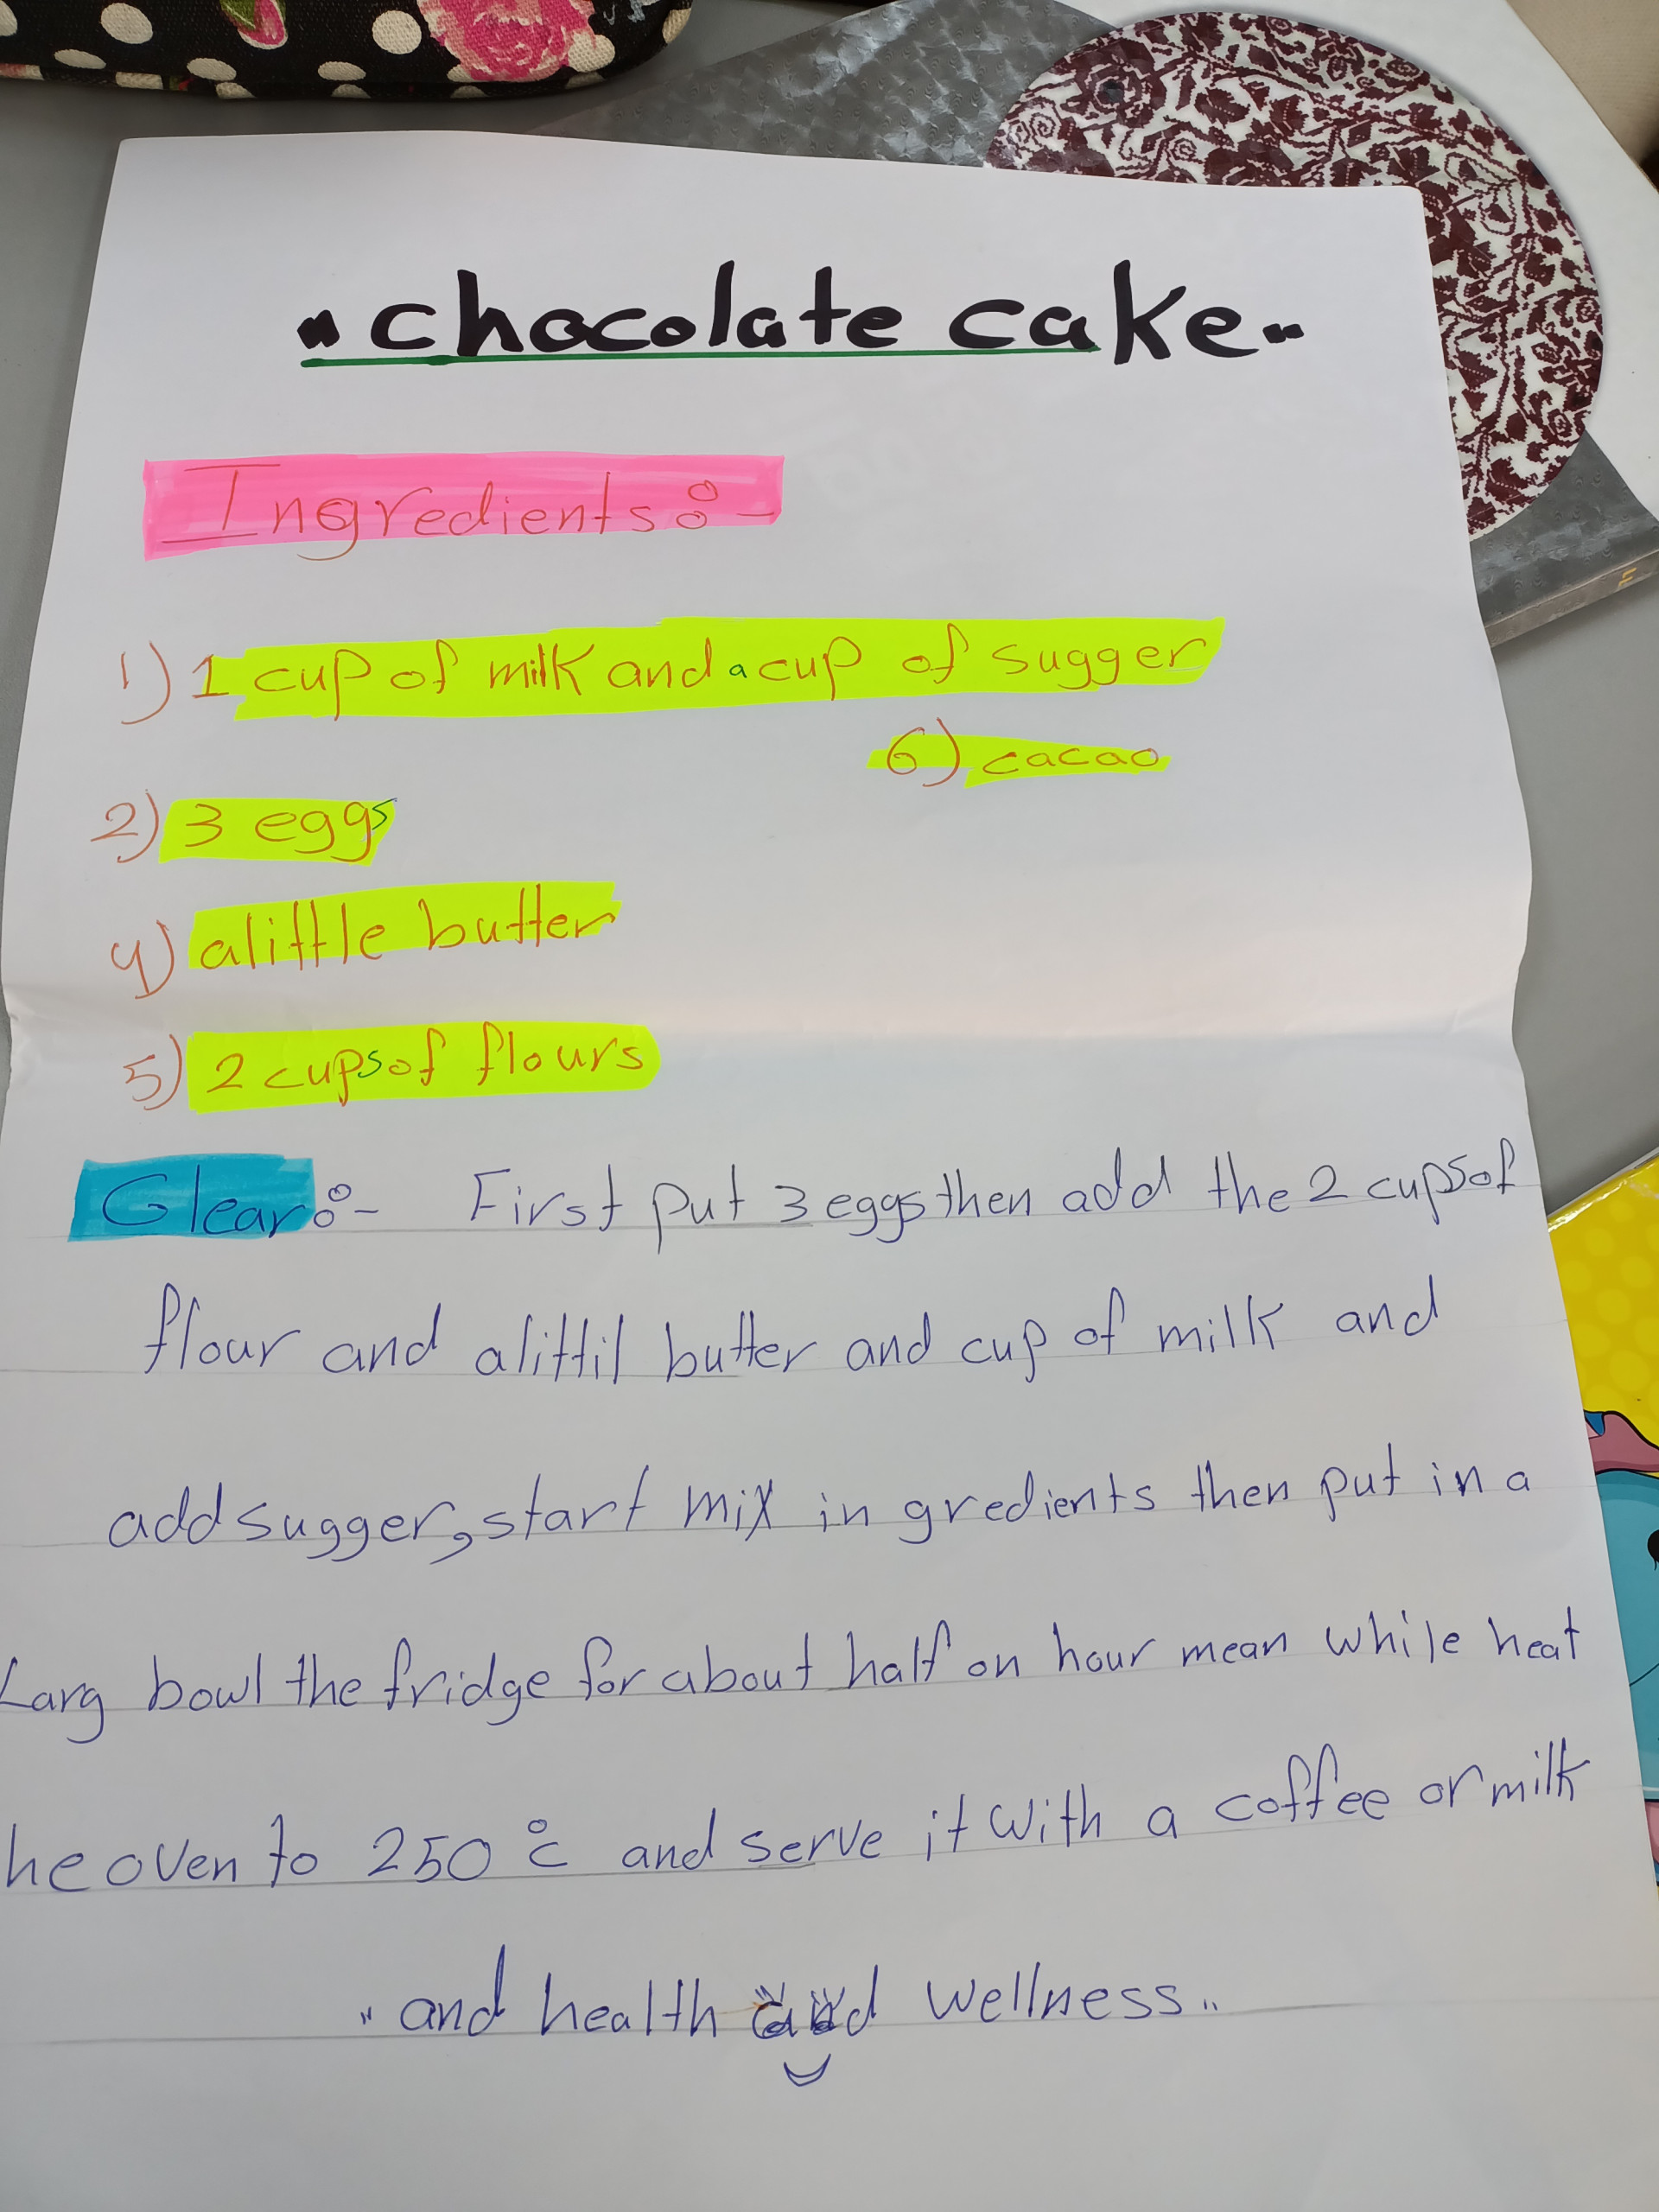 "chocolate cake"
Ingredients:-
1) 1 cup of milk and a cup of sugger
6) cacao
2) 3 eggs
4) alittle butter
5) 2 cups of flours
Glear:- First put 3 eggs then add the 2 cups of
flour and alittil butter and cup of milk and
add sugger, start mix in gredients then put in a
Larg bowl the fridge for about half on hour mean while heat
he oven to 250 °c and serve it with a coffee or milk
"and health and wellness"